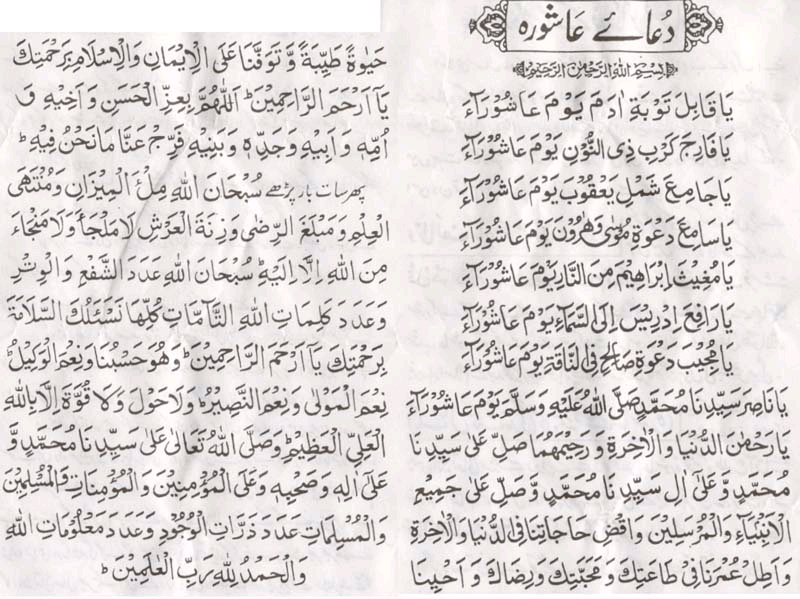 دُعائے عاشورہ
بِسْمِ اللهِ الرَّحْمٰنِ الرَّحِيْمِ
يَا قَابِلَ تَوْبَةِ اٰدَمَ يَوْمَ عَاشُوْرَآءَ
يَا فَارِجَ كَرْبِ ذِى النُّوْنِ يَوْمَ عَاشُوْرَآءَ
يَا جَامِعَ شَمْلِ يَعْقُوْبَ يَوْمَ عَاشُوْرَآءَ
يَا سَامِعَ دَعْوَةِ مُوْسٰى وَهٰرُوْنَ يَوْمَ عَاشُوْرَآءَ
يَا مُغِيْثَ اِبْرَاهِيْمَ مِنَ النَّارِ يَوْمَ عَاشُوْرَآءَ
يَا رَافِعَ اِدْرِيْسَ اِلَى السَّمَآءِ يَوْمَ عَاشُوْرَآءَ
يَا مُجِيْبَ دَعْوَةِ صَالِحٍ فِى النَّاقَةِ يَوْمَ عَاشُوْرَآءَ
يَا نَاصِرَ سَيِّدِنَا مُحَمَّدٍ صَلَّى اللهُ عَلَيْهِ وَسَلَّمَ يَوْمَ عَاشُوْرَآءَ
يَا رَحْمٰنَ الدُّنْيَا وَالْاٰخِرَةِ وَرَحِيْمَهُمَا صَلِّ عَلٰى سَيِّدِنَا
مُحَمَّدٍ وَّعَلٰٓى اٰلِ سَيِّدِنَا مُحَمَّدٍ وَّصَلِّ عَلٰى جَمِيْعِ
الْاَنْبِيَآءِ وَالْمُرْسَلِيْنَ وَاقْضِ حَاجَاتِنَا فِى الدُّنْيَا وَالْاٰخِرَةِ
وَاَطِلْ عُمُرَنَا فِىْ طَاعَتِكَ وَمَحَبَّتِكَ وَرِضَاكَ وَاَحْيِنَا
حَيٰوةً طَيِّبَةً وَّتَوَفَّنَا عَلَى الْاِيْمَانِ وَالْاِسْلَامِ بِرَحْمَتِكَ
يَآ اَرْحَمَ الرَّاحِمِيْنَ ؕ اَللّٰهُمَّ بِعِزِّ الْحَسَنِ وَاَخِيْهِ وَ
اُمِّهٖ وَاَبِيْهِ وَجَدِّهٖ وَبَنِيْهِ فَرِّجْ عَنَّا مَا نَحْنُ فِيْهِ ؕ
پھر سات بار پڑھے سُبْحَانَ اللهِ مِلْءَ الْمِيْزَانِ وَمُنْتَهَى
الْعِلْمِ وَمَبْلَغَ الرِّضٰى وَزِنَةَ الْعَرْشِ لَا مَلْجَاَ وَلَا مَنْجَاءَ
مِنَ اللهِ اِلَّا اِلَيْهِ ؕ سُبْحَانَ اللهِ عَدَدَ الشَّفْعِ وَالْوِتْرِ
وَعَدَدَ كَلِمَاتِ اللهِ التَّآمَّاتِ كُلِّهَا نَسْئَلُكَ السَّلَامَةَ
بِرَحْمَتِكَ يَآ اَرْحَمَ الرَّاحِمِيْنَ ؕ وَهُوَ حَسْبُنَا وَنِعْمَ الْوَكِيْلُ ؕ
نِعْمَ الْمَوْلٰى وَنِعْمَ النَّصِيْرُ ؕ وَلَا حَوْلَ وَلَا قُوَّةَ اِلَّا بِاللهِ
الْعَلِىِّ الْعَظِيْمِ ؕ وَصَلَّى اللهُ تَعَالٰى عَلٰى سَيِّدِنَا مُحَمَّدٍ وَّ
عَلٰٓى اٰلِهٖ وَصَحْبِهٖ وَعَلَى الْمُؤْمِنِيْنَ وَالْمُؤْمِنَاتِ وَالْمُسْلِمِيْنَ
وَالْمُسْلِمَاتِ عَدَدَ ذَرَّاتِ الْوُجُوْدِ وَعَدَدَ مَعْلُوْمَاتِ اللهِ
وَالْحَمْدُ لِلّٰهِ رَبِّ الْعٰلَمِيْنَ ؕ